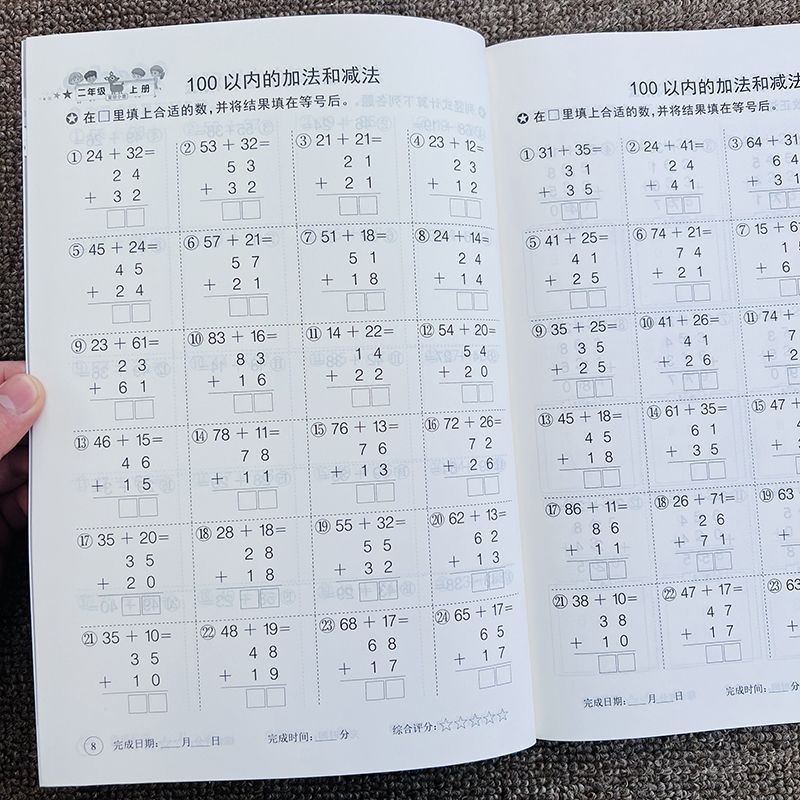 二年级 上册
100 以内的加法和减法
✪ 在□里填上合适的数,并将结果填在等号后。
① 24 + 32= ② 53 + 32= ③ 21 + 21= ④ 23 + 12=
2 4 5 3 2 1 2 3
+ 3 2 + 3 2 + 2 1 + 1 2
⑤ 45 + 24= ⑥ 57 + 21= ⑦ 51 + 18= ⑧ 24 + 14=
4 5 5 7 5 1 2 4
+ 2 4 + 2 1 + 1 8 + 1 4
⑨ 23 + 61= ⑩ 83 + 16= ⑪ 14 + 22= ⑫ 54 + 20=
2 3 8 3 1 4 5 4
+ 6 1 + 1 6 + 2 2 + 2 0
⑬ 46 + 15= ⑭ 78 + 11= ⑮ 76 + 13= ⑯ 72 + 26=
4 6 7 8 7 6 7 2
+ 1 5 + 1 1 + 1 3 + 2 6
⑰ 35 + 20= ⑱ 28 + 18= ⑲ 55 + 32= ⑳ 62 + 13=
3 5 2 8 5 5 6 2
+ 2 0 + 1 8 + 3 2 + 1 3
㉑ 35 + 10= ㉒ 48 + 19= ㉓ 68 + 17= ㉔ 65 + 17=
3 5 4 8 6 8 6 5
+ 1 0 + 1 9 + 1 7 + 1 7
8 完成日期:__月__日 完成时间:__分 综合评分:☆☆☆☆☆
100 以内的加法和减法
✪ 在□里填上合适的数,并将结果填在等号后。
① 31 + 35= ② 24 + 41= ③ 64 + 31
3 1 2 4 6 4
+ 3 5 + 4 1 + 3 1
⑤ 41 + 25= ⑥ 74 + 21= ⑦ 15 + 6
4 1 7 4 1
+ 2 5 + 2 1 + 6
⑨ 35 + 25= ⑩ 41 + 26= ⑪ 74 +
3 5 4 1 7
+ 2 5 + 2 6 + 2
⑬ 45 + 18= ⑭ 61 + 35= ⑮ 47 +
4 5 6 1
+ 1 8 + 3 5 +
⑰ 86 + 11= ⑱ 26 + 71= ⑲ 63
8 6 2 6
+ 1 1 + 7 1 +
㉑ 38 + 10= ㉒ 47 + 17= ㉓ 63
3 8 4 7
+ 1 0 + 1 7 +
完成日期:__月__日 完成时间:__分